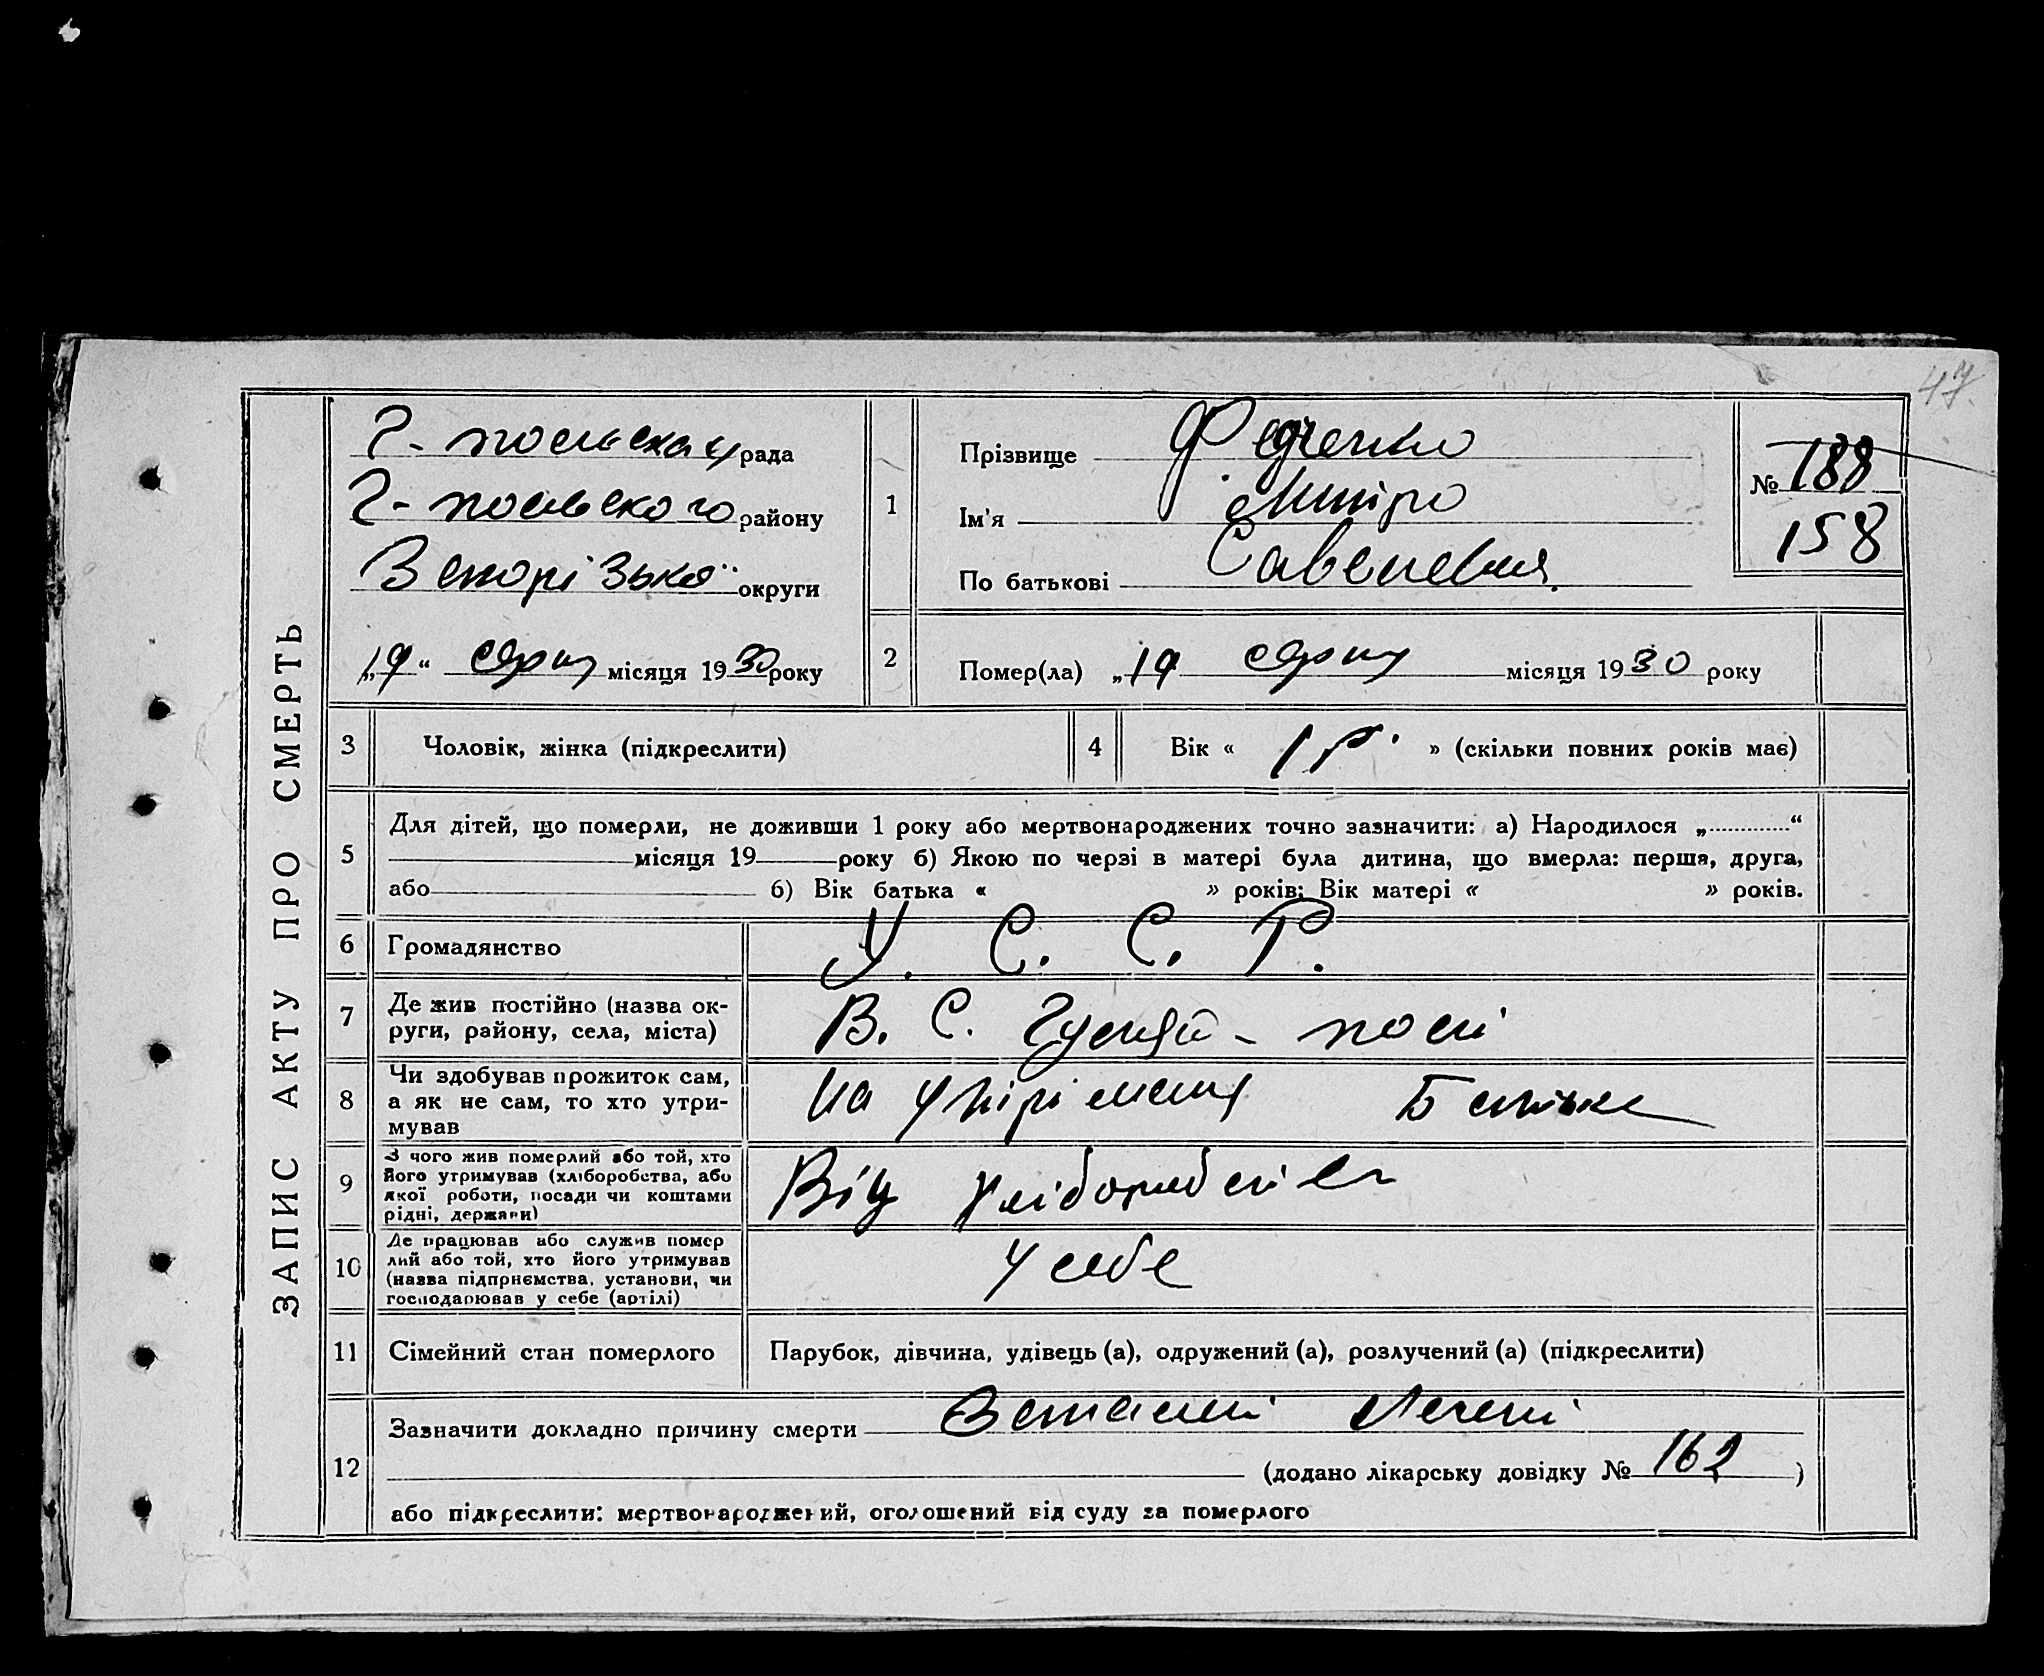 47.
ЗАПИС АКТУ ПРО СМЕРТЬ
Г-польська рада
Г-польського району
Запорізької округи
„19“ серпня місяця 1930 року
1
Прізвище Федченко
Ім'я Дмитро
По батькові
№ 188
158
2
Помер(ла) „19 серпня місяця 1930 року
3 Чоловік, жінка (підкреслити)
4 Вік « 1 р. » (скільки повних років має)
5
Для дітей, що померли, не доживши 1 року або мертвонароджених точно зазначити: а) Народилося „ “
місяця 19 року б) Якою по черзі в матері була дитина, що вмерла: перша, друга,
або б) Вік батька « » років; Вік матері « » років.
6 Громадянство У. С. С. Р.
7 Де жив постійно (назва ок-
руги, району, села, міста)
В. С. Гуляй-полі
8 Чи здобував прожиток сам,
а як не сам, то хто утри-
мував
На Батька
9 З чого жив померлий або той, хто
його утримував (хліборобства, або
якої роботи, посади чи коштами
рідні, держави)
Від
10 Де працював або служив помер
лий або той, хто його утримував
(назва підприємства, установи, чи
господарював у себе (артілі)
У себе
11 Сімейний стан померлого Парубок, дівчина, удівець (а), одружений (а), розлучений (а) (підкреслити)
12
Зазначити докладно причину смерти
(додано лікарську довідку № 162 )
або підкреслити: мертвонароджений, оголошений від суду за померлого